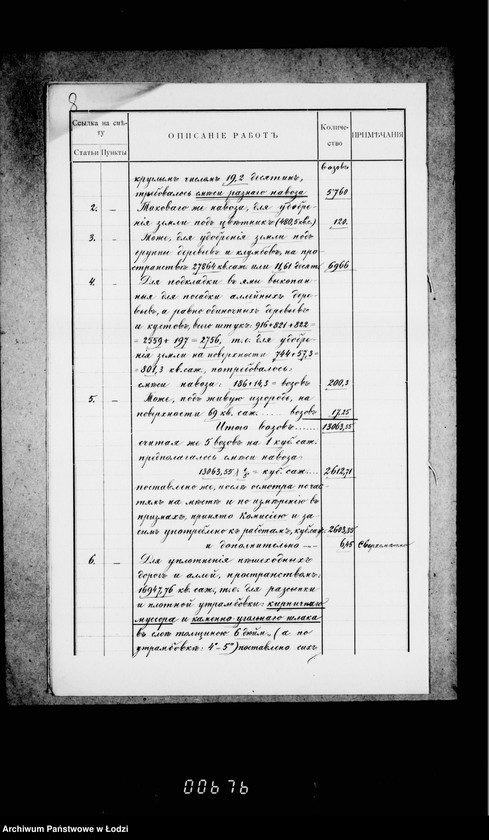 8
Ссылка на смѣ-
ту
Статьи Пункты
ОПИСАНІЕ РАБОТЪ
Количе-
ство
ПРИМѢЧАНІЯ
возовъ
круглымъ числомъ 19,2 десятинъ,
требовалось смѣси разнаго навоза 5760
2. — Таковаго же навоза, для удобре-
нія земли подъ цвѣтникъ (480,5 кв.с.) 120.
3. — Тоже, для удобренія земли подъ
группы деревьевъ и клумбовъ, на про
странствѣ 27864 кв.саж. или 11,61 десят. 6966
4. — Для подкладки въ ямы выкопан-
ныя для посадки аллейныхъ дере-
вьевъ, а равно одиночныхъ деревьевъ
и кустовъ, всего штукъ: 916+821+822=
=2559+197=2756, т.е. для удобре-
нія земли на поверхности 744+57,3=
=801,3 кв.саж., потребовалось:
смѣси навоза: 186+14,3= возовъ 200,3
5. — Тоже, подъ живую изгородь, на
поверхности 69 кв. саж. ...... возовъ 17.25
Итого возовъ ...... 13063,55
считая же 5 возовъ на 1 куб. саж.
предполагалось смѣси навоза:
13063,55 = куб. саж. ... 2612,71
поставлено же, послѣ осмотра по час-
тямъ на мѣстѣ и по измѣренію въ
призмахъ, принято Комисіею и за-
симъ употреблено къ работамъ, куб.саж. 2603,55
и дополнительно — — 6,45 Сверхсмѣтно
6. — Для уплотненія пѣшеходныхъ
дорогъ и аллей, пространствомъ:
16947,76 кв. саж., т.е. для разсыпки
и плотной утрамбовки: кирпичнаго
муссера и каменно-угольнаго шлака
въ слоѣ толщиною 6 дюйм. (а по
утрамбовкѣ: 4"–5") поставлено сихъ
00676
Archiwum Państwowe w Łodzi